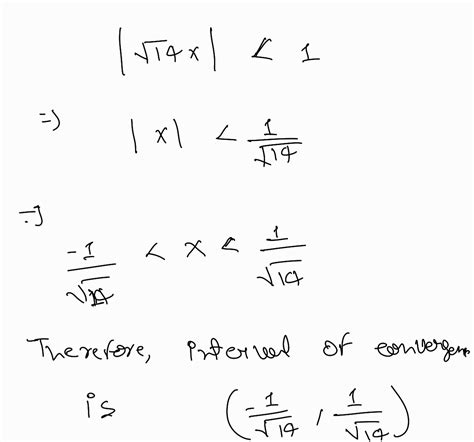 |√14x| < 1
=) |x| < 1/√14
=) -1/√14 < x < 1/√14
Therefore, interval of convergen
is (-1/√14, 1/√14)